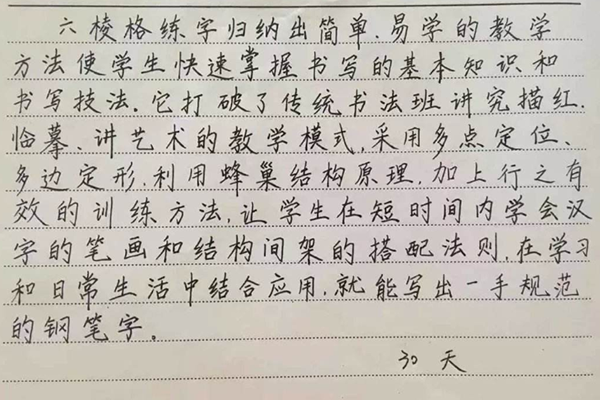 六棱格练字归纳出简单.易学的教学
方法使学生快速掌握书写的基本知识和
书写技法.它打破了传统书法班讲究描红.
临摹、讲艺术的教学模式,采用多点定位、
多边定形.利用蜂巢结构原理.加上行之有
效的训练方法,让学生在短时间内学会汉
字的笔画和结构间架的搭配法则.在学习
和日常生活中结合应用.就能写出一手规范
的钢笔字.
30天